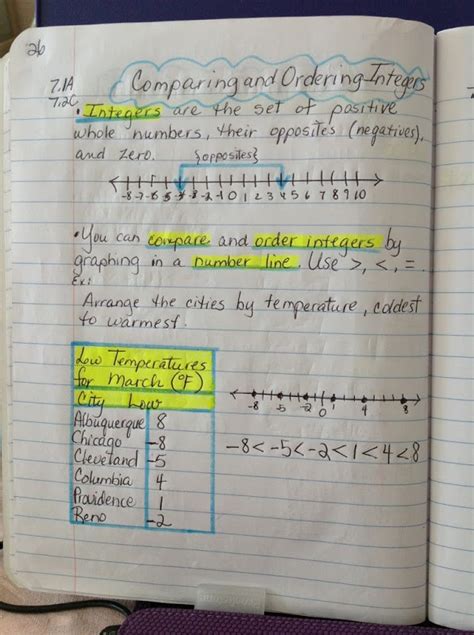 26
7.1A
7.2C
Comparing and Ordering Integers
• Integers are the set of positive
whole numbers, their opposites (negatives),
and zero. {opposites}
-2 -1 0 1 2 3 4 5 6 7 8 9 10
• You can compare and order integers by
graphing in a number line. Use >, <, =.
Ex:
Arrange the cities by temperature, coldest
to warmest.
Low Temperatures
for March (°F)
City Low
Albuquerque 8
Chicago -8
Cleveland -5
Columbia 4
Providence 1
Reno -2
-8 -5 -2 0 1 4 8
-8<-5<-2<1<4<8